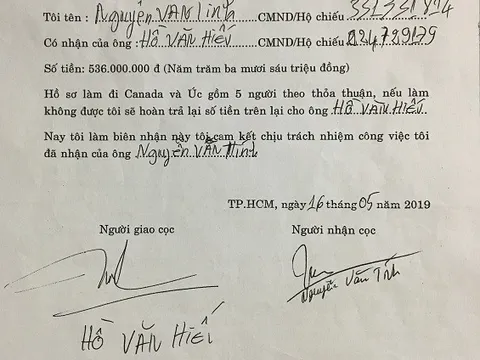 Tôi tên : Nguyễn Văn Tính CMND/Hộ chiếu 331331814
Có nhận của ông : HỒ VĂN HIẾU CMND/Hộ chiếu 024789179
Số tiền: 536.000.000 đ (Năm trăm ba mươi sáu triệu đồng)
Hồ sơ làm đi Canada và Úc gồm 5 người theo thỏa thuận, nếu làm
không được tôi sẽ hoàn trả lại số tiền trên lại cho ông HỒ VĂN HIẾU
Nay tôi làm biên nhận này tôi cam kết chịu trách nhiệm công việc tôi
đã nhận của ông Nguyễn Văn Tính
TP.HCM, ngày 16 tháng 05 năm 2019
Người giao cọc Người nhận cọc
Nguyễn Văn Tính
HỒ VĂN HIẾU